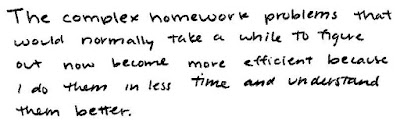 The complex homework problems that
would normally take a while to figure
out now become more efficient because
I do them in less time and understand
them better.